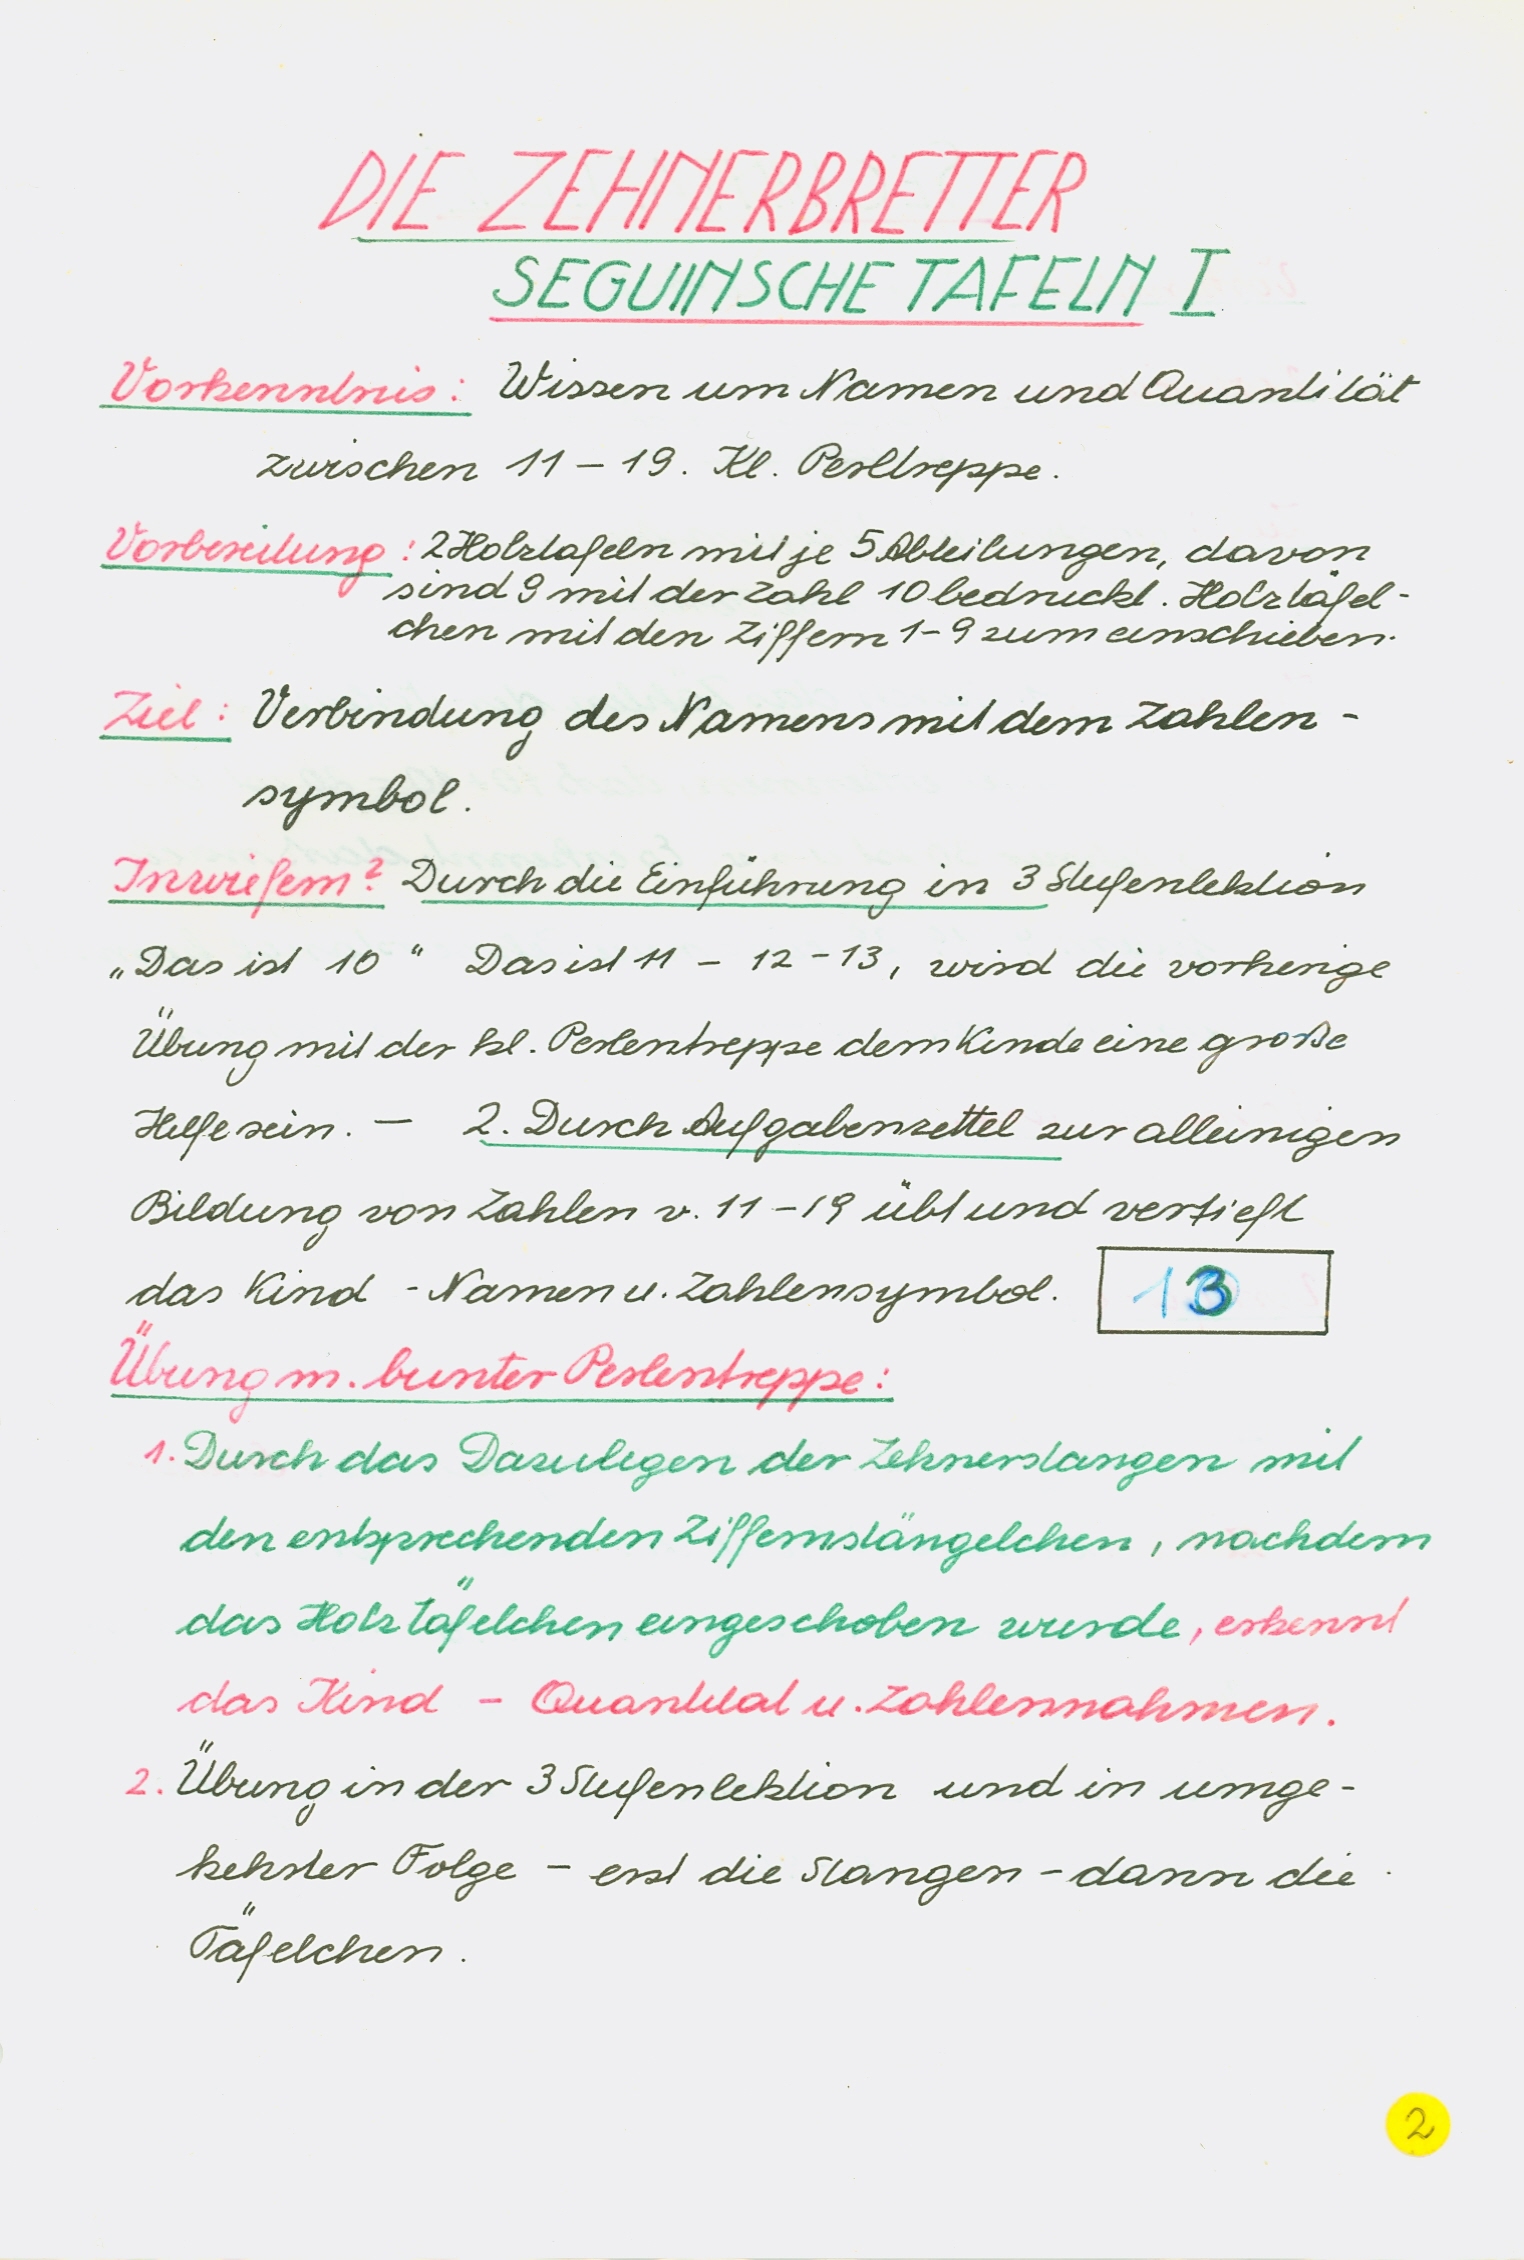 DIE ZEHNERBRETTER
SEGUINSCHE TAFELN I
Vorkenntnis: Wissen um Namen und Quantität
zwischen 11 – 19. Kl. Perltreppe.
Vorbereitung: 2 Holztafeln mit je 5 Abteilungen, davon
sind 9 mit der Zahl 10 bedruckt. Holztäfel-
chen mit den Ziffern 1-9 zum einschieben.
Ziel: Verbindung des Namens mit dem Zahlen-
symbol.
Inwiefern? Durch die Einführung in 3 Stufenlektion
„Das ist 10" Das ist 11 – 12 – 13, wird die vorherige
Übung mit der kl. Perlentreppe dem Kinde eine große
Hilfe sein. – 2. Durch Aufgabenzettel zur alleinigen
Bildung von Zahlen v. 11 – 19 übt und vertieft
das Kind - Namen u. Zahlensymbol. 13
Übung m. bunter Perlentreppe:
1. Durch das Dazulegen der Zehnerstangen mit
den entsprechenden Ziffernstängelchen, nachdem
das Holztäfelchen eingeschoben wurde, erkennt
das Kind – Quantität u. Zahlennahmen.
2. Übung in der 3 Stufenlektion und in umge-
kehrter Folge – erst die Stangen – dann die
Täfelchen.
2